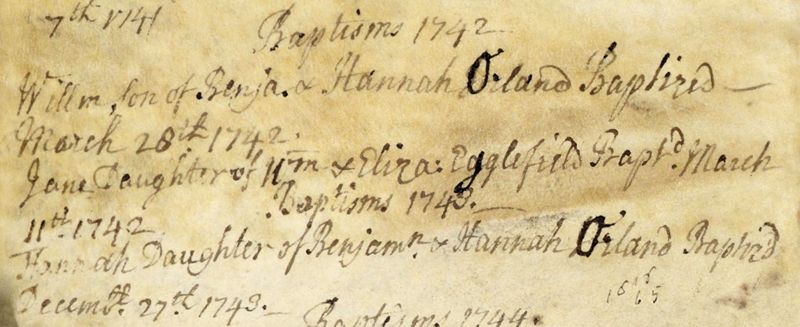 7th 1741
Baptisms 1742
Willm son of Benja. & Hannah Orland Baptized
March 28th. 1742.
Jane Daughter of Wm & Eliza: Egglefield Baptd. March
11th 1742
Baptisms 1743.
Hannah Daughter of Benjamn. & Hannah Orland Baptizd
Decembr. 27th. 1743.
Baptisms 1744.